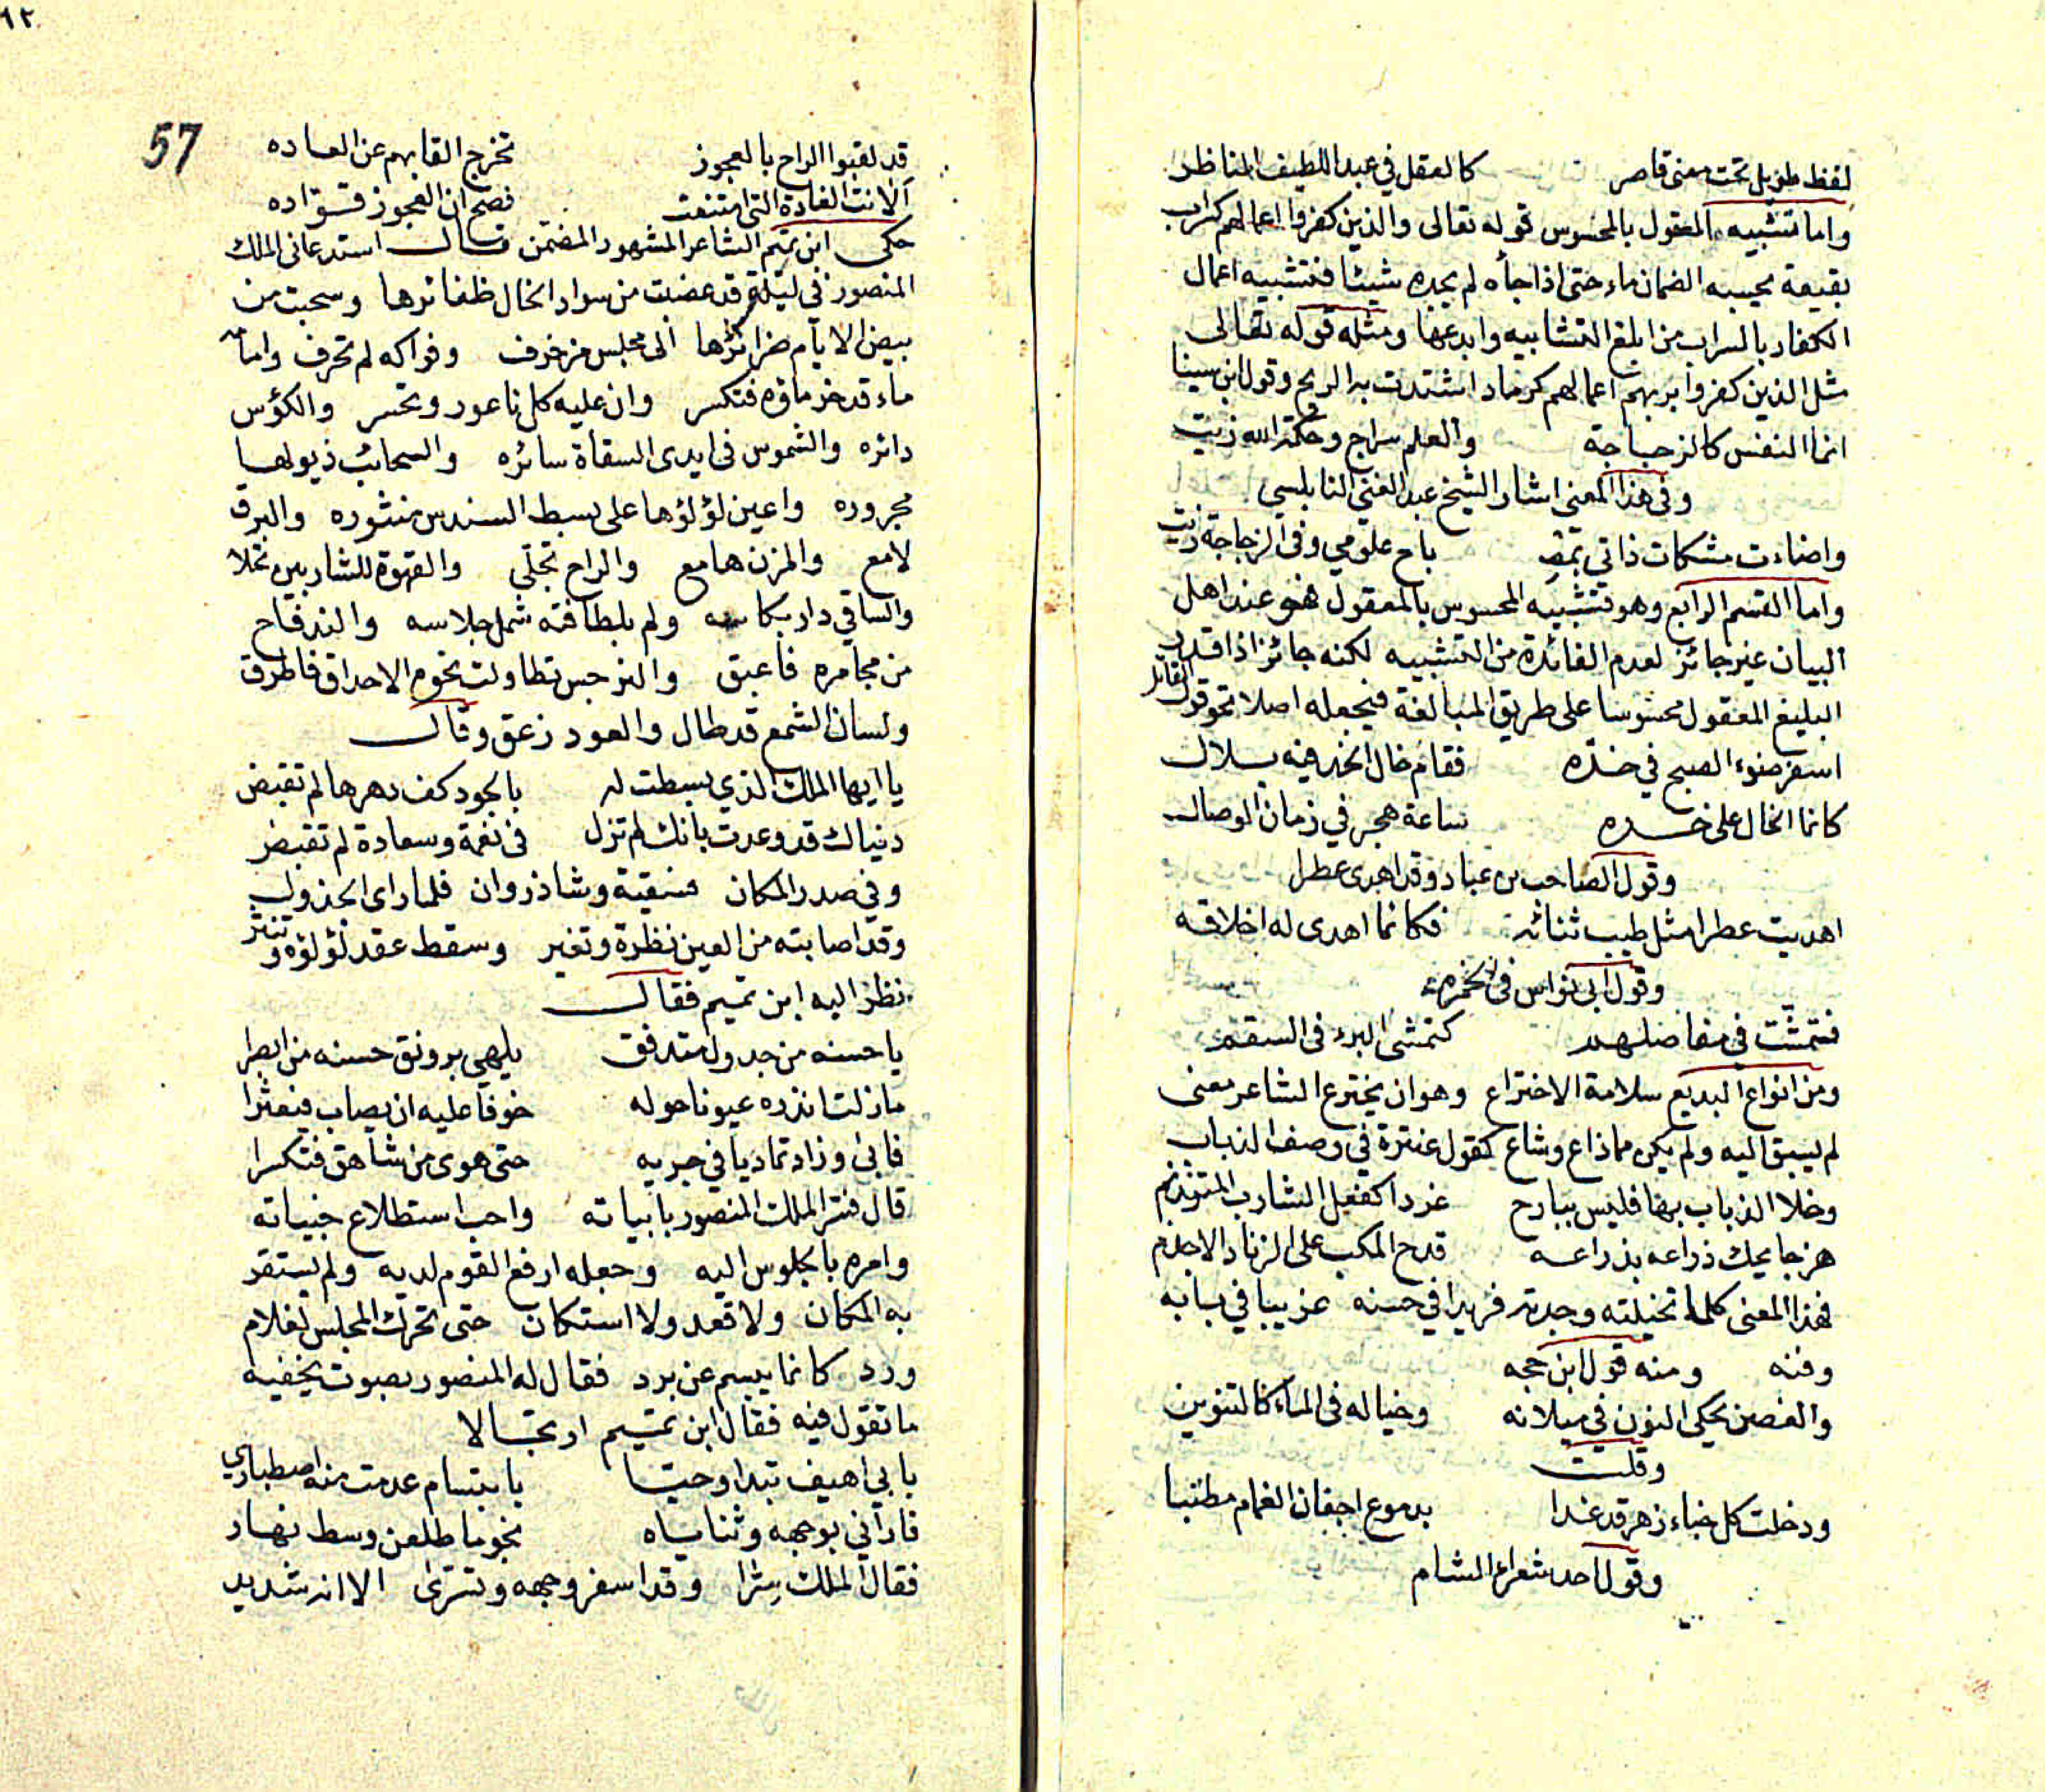 لفظ طويل تحت معنى قاصر كالعقل في عبد اللطيف المناظر
واما تشبيه المعقول بالمحسوس قوله تعالى والذين كفروا اعمالهم كسراب
بقيعة يحسبه الضمان ماء حتى اذا جأه لم يجده شيئا فتشبيه اعمال
الكفار بالسراب من ابلغ التشابيه وابدعها ومثله قوله تعالى
مثل الذين كفروا بربهم اعمالهم كرماد اشتدت به الريح وقول ابن سينا
انما النفس كالزجاجة والعلم سراج وحكمة الله زيت
وفي هذا المعنى اشار الشيخ عبد الغني النابلسي
واضاءت مشكات ذاتي بمصباح علومي وفي الزجاجة زيت
واما القسم الرابع وهو تشبيه المحسوس بالمعقول فهو عند اهل
البيان غير جائز لعدم الفائدة من التشبيه لكنه جائز اذا قدر
البليغ المعقول محسوسا على طريق المبالغة فيجعله اصلا نحو قول القائل
اسفر ضوء الصبح في خده فقام خال الخد فيه بلال
كانما الخال على خده ساعة هجر في زمان الوصال
وقول الصاحب بن عباد وقد اهدى عطرا
اهديت عطرا مثل طيب ثنائه فكانما اهدى له اخلاقه
وقول ابي نواس في الخمره
فتمشت في مفاصلهم كتمشي البرء في السقم
ومن انواع البديع سلامة الاختراع وهو ان يخترع الشاعر معنى
لم يسبق اليه ولم يكن مما ذاع وشاع كقول عنترة في وصف الذباب
وخلا الذباب بها فليس ببارح غردا كفعل الشارب المترنم
هزجا يحك ذراعه بذراعه قدح المكب على الزناد الاجذم
فهذا المعنى كلما تخيلته وجدته فريدا في حسنه غريبا في بابه
وفنه ومنه قول ابن حجه
والغصن يحكي النون في ميلانه وخياله في الماء كالتنوين
وقلت
ودخلت كل خباء زهر قد غدا بدموع اجفان الغمام مطنبا
وقول احد شعراء الشام
٦٢
57
قد لقبوا الراح بالعجوز تخرج القابهم عن العاده
الانت الغادة التي امتنعت فصح ان العجوز قواده
حكى ابن تميم الشاعر المشهور المضمن قال استدعاني الملك
المنصور في ليلة قد غضبت من سواد الخال ظفائرها وسحبت من
بيض الايام ضرائرها الى مجلس مزخرف وفواكه لم تحرف وامامه
ماء قد خر ماؤه فتكسر وان عليه كل ناعور وتحسر والكؤس
دائره والشموس في ايدي السقاة سائره والسحائب ذيولها
مجروره واعين لؤلؤها على بسط السندس منثوره والبرق
لامع والمزن هامع والراح تجلى والقهوة للشاربين تملا
والساقي دار بكاسه ولم بلطافته شمل جلاسه والند فاح
من مجامره فاعبق والنرجس تطاولت نحوه الاحداق فاطرق
ولسان الشمع قد طال والعود زعق وقال
يا ايها الملك الذي بسطت له بالجود كف دهرها لم تقبض
دنياك قد وعدت بانك لم تزل في نعمة وسعادة لم تقبض
وفي صدر المكان فسقية وشاذروان فلما راى الجدول
وقد اصابته من العين نظرة وتغير وسقط عقد لؤلؤه وتنثر
نظر اليه ابن تميم فقال
يا حسنه من جدول متدفق يلهي برونق حسنه من ابصرا
مازلت انذره عيونا حوله خوفا عليه ان يصاب فيعثرا
فابى وزاد تماديا في جريه حتى هوى من شاهق فتكسرا
قال فسر الملك المنصور بابياته واحب استطلاع خبياته
وامره بالجلوس اليه وجعله ارفع القوم لديه ولم يستقر
به المكان ولا قعد ولا استكان حتى تحرك المجلس لغلام
ورد كانما يبسم عن برد فقال له المنصور بصوت يخفيه
ما تقول فيه فقال ابن تميم ارتجالا
بابي اهيف تبدا وحيا بابتسام عدمت منه اصطباري
فاراني بوجهه وثناياه نجوما طلعن وسط نهار
فقال الملك سرا وقد اسفر وجهه وتسرى الا انه شديد